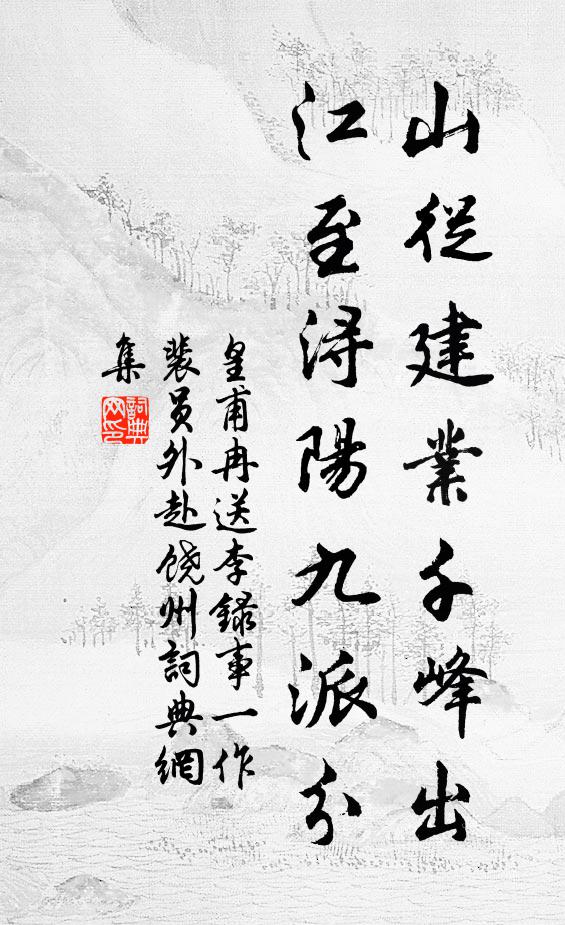 山從建業千峰出
江至浔陽九派分
皇甫冉送李錄事一作
裴員外赴饒州詞典網
集
詞典网印